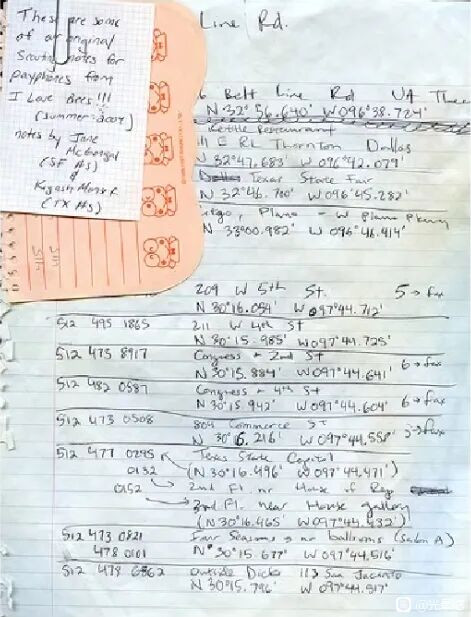 These are some
of our original
Scouting notes for
payphones from
I Love Bees!!!
(summer 2004)
notes by Jane
McGonigal
(SF #s)
&
(TX #s)
415
415
Line Rd.
6 Belt Line Rd UA Thea
N 32°56.640' W 096°38.724'
Restaurant
111 E RL Thornton Dallas
N 32°47.683' W 096°42.079'
Texas State Fair
N 32°46.700' W 096°45.282'
Plano - W Plano Pkwy
N 33°00.982' W 096°46.414'
209 W 5th St. 5 → fax
N 30°16.054' W 097°44.712'
512 495 1865 211 W 4th St
N 30°15.985' W 097°44.725'
512 473 8917 Congress + 2nd St 6 → fax
N 30°15.884' W 097°44.641'
512 482 0587 Congress + 4th St 6 → fax
N 30°15.942' W 097°44.604'
512 473 0508 804 Commerce St 3 → fax
N 30°6.216' W 097°44.558'
512 477 0295 Texas State Capitol
0132 (N 30°16.496' W 097°44.471')
0152 2nd Fl. nr House of Rep
3rd Fl. near House gallery
(N 30°16.465' W 097°44.432')
512 473 0821 Four Seasons nr ballrooms (salon A)
478 0101 N 30°15.677' W 097°44.516'
512 478 6362 outside Dicks 113 San Jacinto
N 30°15.796' W 097°44.517'